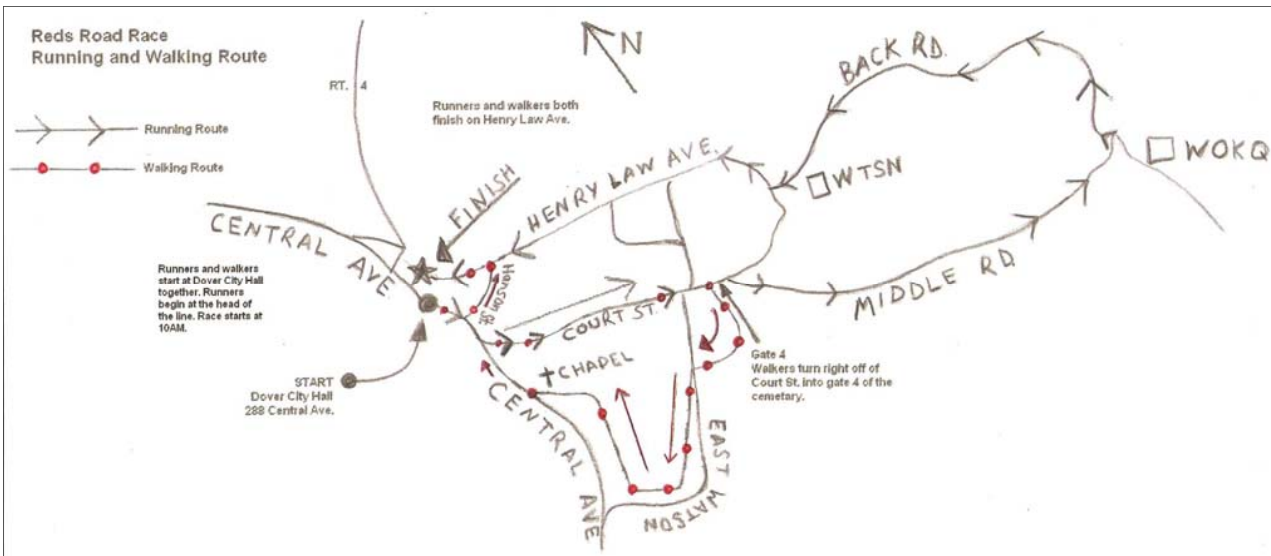 Reds Road Race
Running and Walking Route
RT. 4
N
Running Route
Walking Route
Runners and walkers both
finish on Henry Law Ave.
BACK RD.
WOKQ
WTSN
HENRY LAW AVE.
FINISH
CENTRAL AVE
Runners and walkers
start at Dover City Hall
together. Runners
begin at the head of
the line. Race starts at
10AM.
Hanson St.
COURT ST.
MIDDLE RD.
START
Dover City Hall
288 Central Ave.
CHAPEL
Gate 4
Walkers turn right off of
Court St. into gate 4 of the
cemetary.
CENTRAL AVE
EAST WATSON